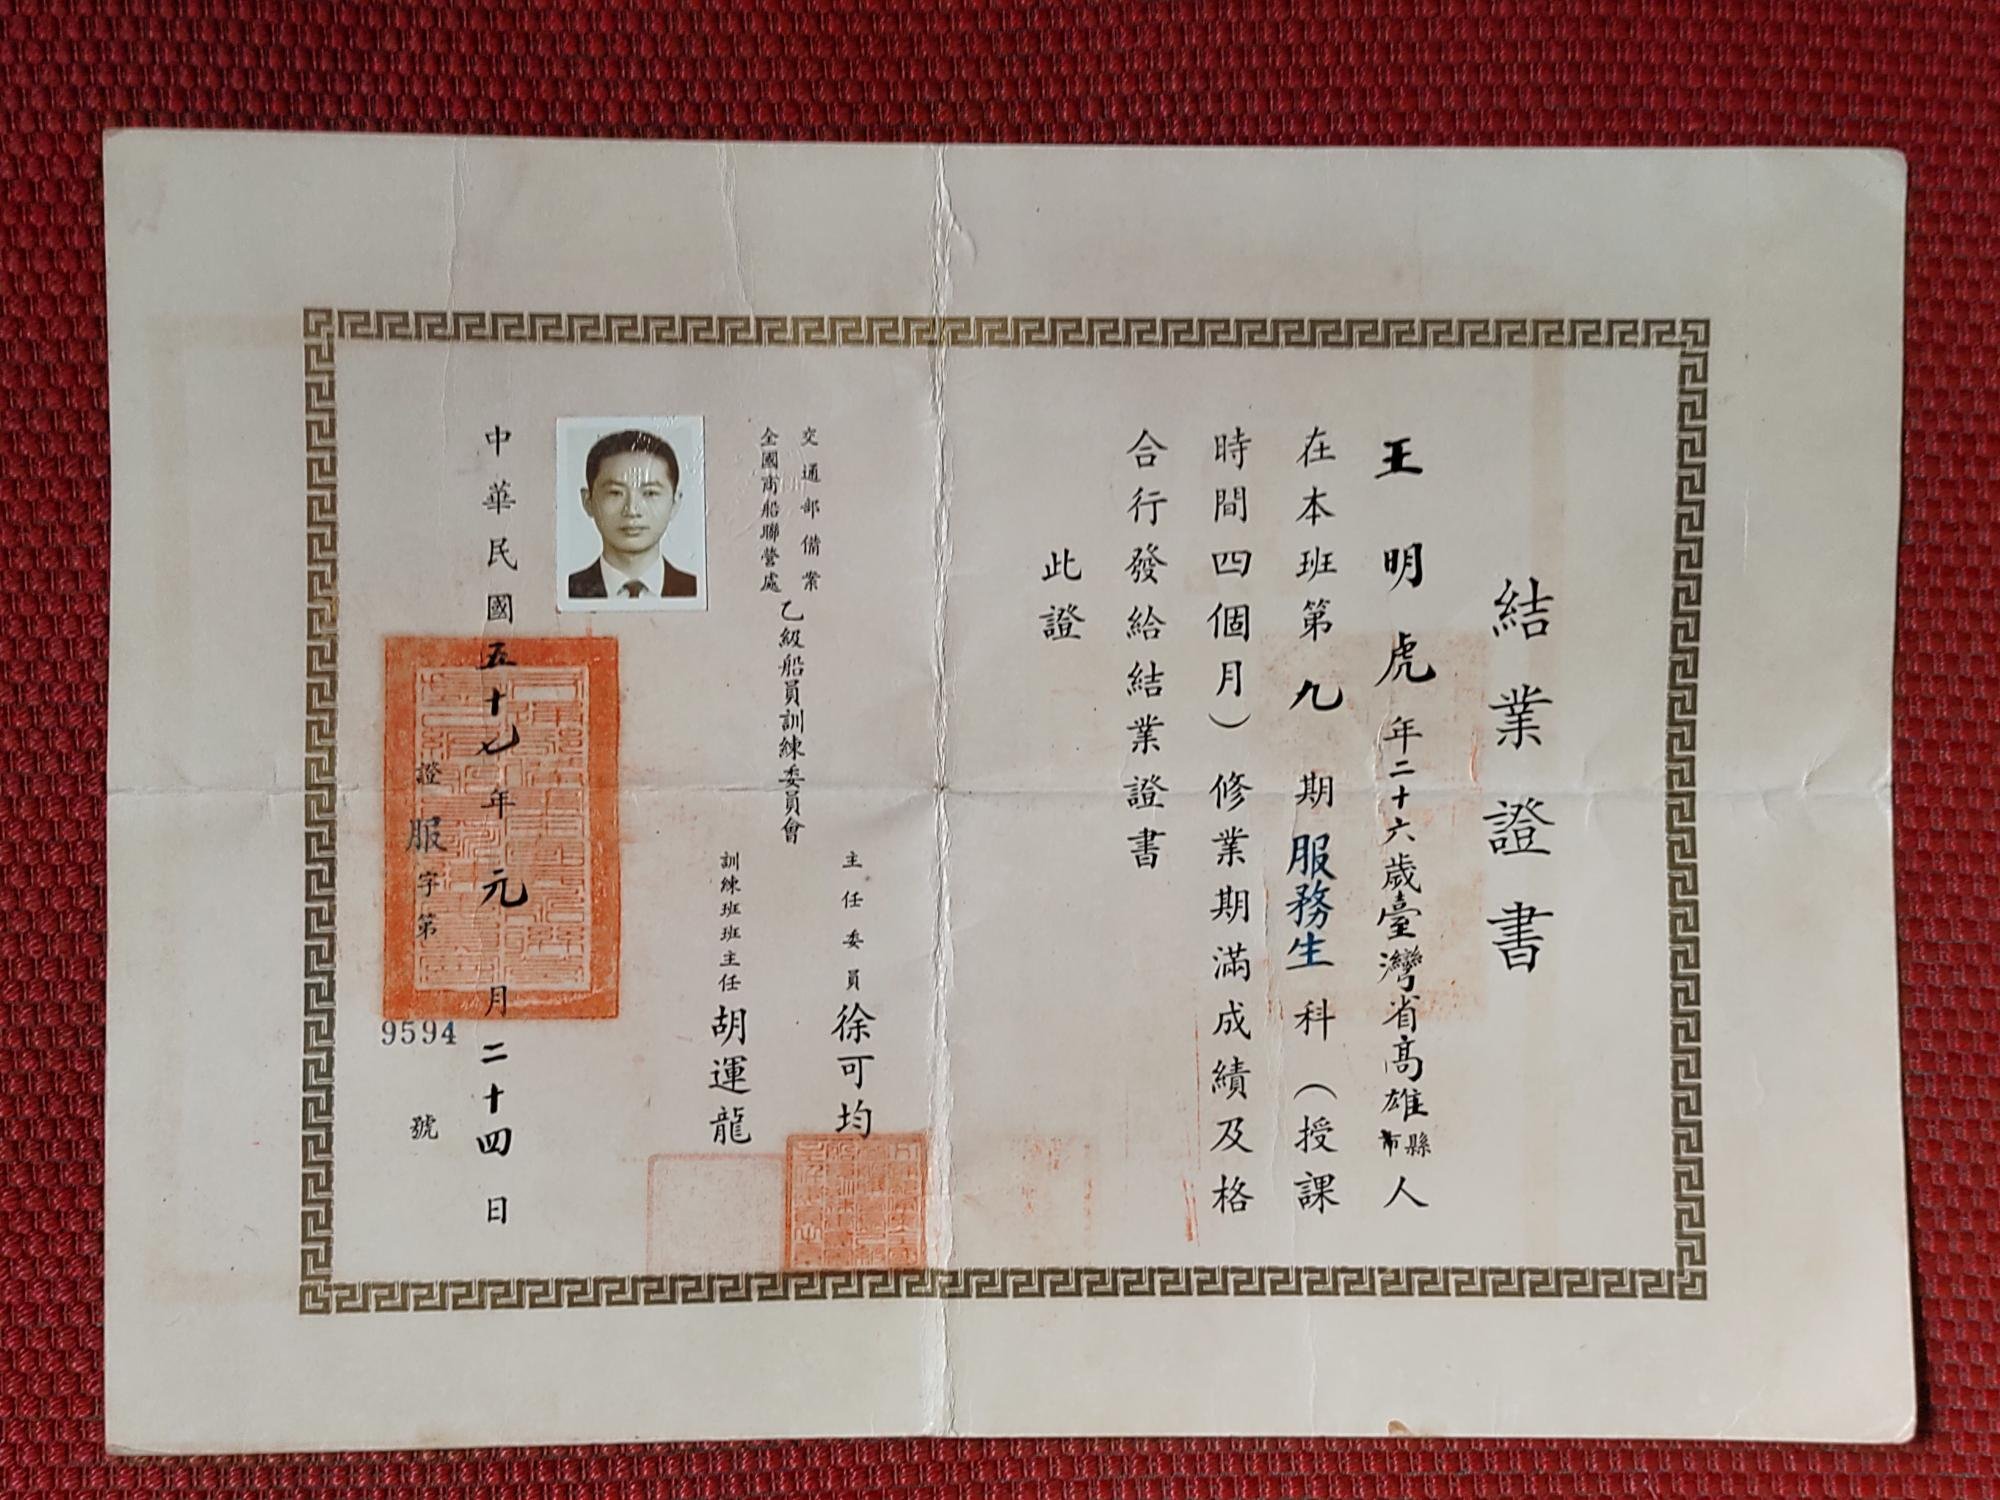 結業證書
王明虎年二十六歲臺灣省高雄縣市人
在本班第九期服務生科（授課
時間四個月）修業期滿成績及格
合行發給結業證書
此證
交通部備業
全國商船聯營處
乙級船員訓練委員會
主任委員徐可均
訓練班班主任胡運龍
中華民國五十七年元月二十四日
證服字第9594號